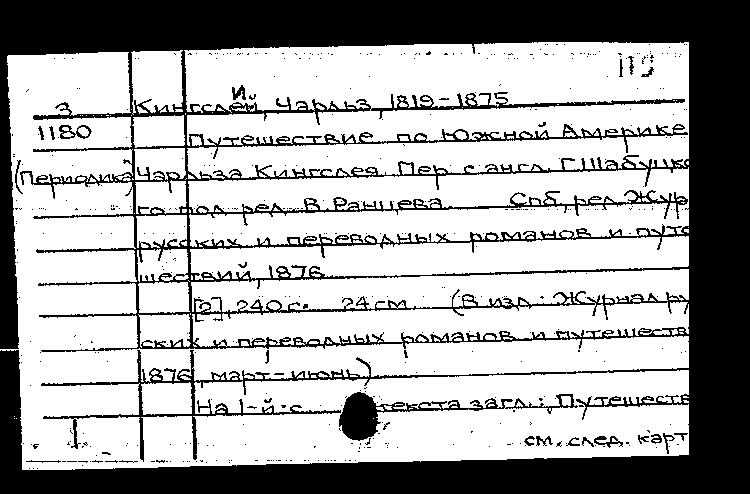 119
3 Кингслей, Чарльз, 1819-1875
1180 Путешествие по Южной Америке
(Периодика) Чарльза Кингслея. Пер. с англ. Г. Шабуцко
го под ред. В. Ранцева. Спб., ред. Жур
русских и переводных романов и путе
шествий, 1876
[2], 240 с. 24 см. (В изд.: Журнал ру
ских и переводных романов и путешеств
1876, март-июнь)
На 1-й с. текста загл.: Путешеств
см. след. карт